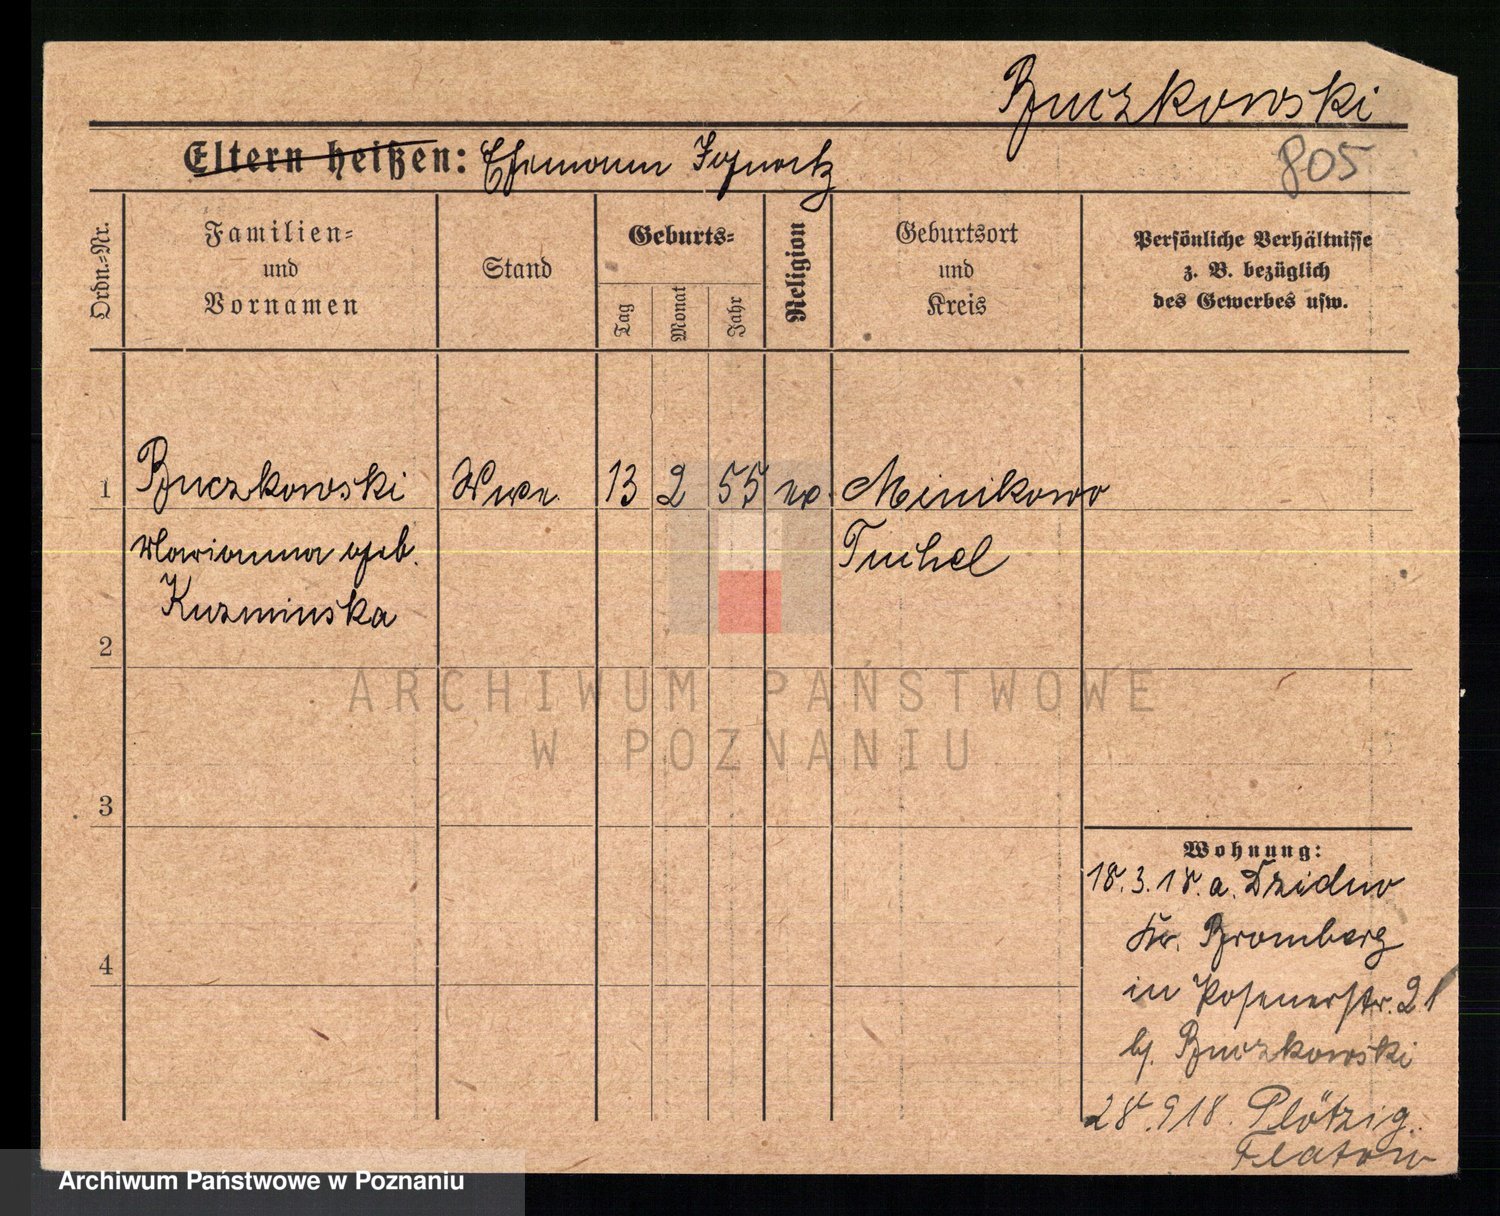 Buczkowski
805
Eltern heißen: Ehemann Ignatz
Ordn.-Nr.
Familien- und Vornamen
Stand
Geburts-
Tag
Monat
Jahr
Religion
Geburtsort und Kreis
Persönliche Verhältnisse
z. B. bezüglich
des Gewerbes usw.
1 Buczkowski Wwe. 13 2 55 Minikowo
Marianna geb. Tuchel
Kuzminska
2
3
4
Wohnung:
18.3.18. a. Dzidno
Kr. Bromberg
in Posenerstr. 21
b. Buczkowski
28.9.18. Plötzig.
Flatow
ARCHIWUM PAŃSTWOWE
W POZNANIU
Archiwum Państwowe w Poznaniu